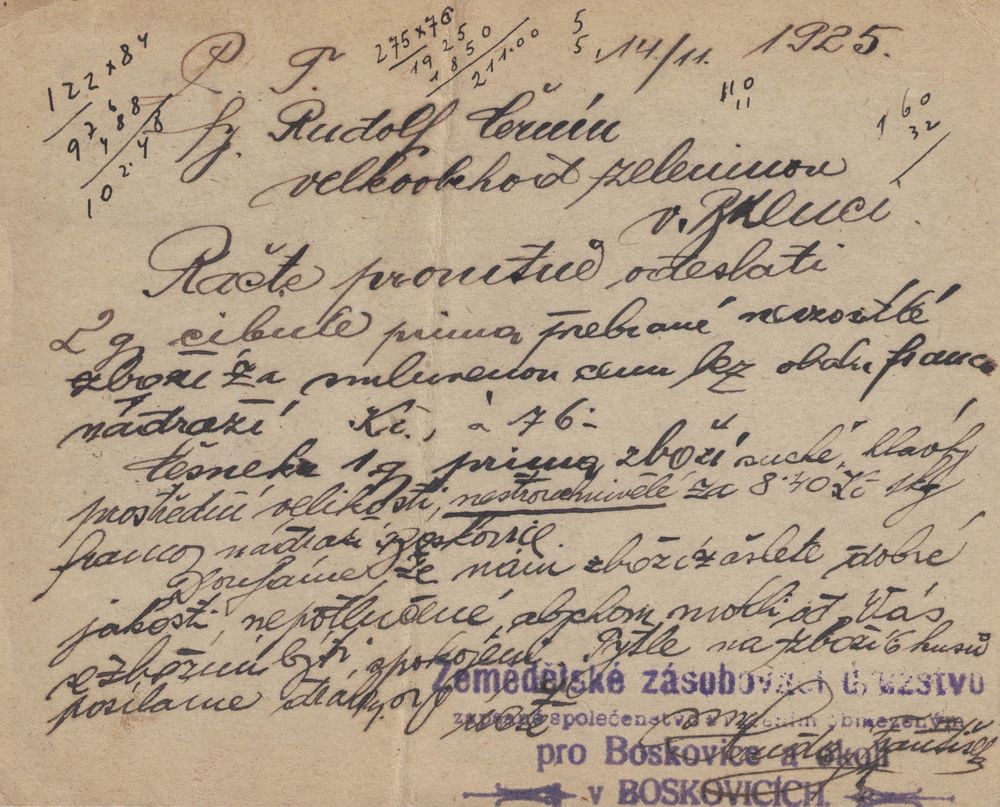 P. T. 14/11. 1925.
122 x 84
976
488
102.48
275 x 76
1925
1650
211.00
5
5
110
11
160
32
fy. Rudolf Černín
velkoobchod zeleninou
v
Račte promtně odeslati
2 q cibule prima přebrané
zboží za smluvenou cenu bez obalu franco
nádraží Kč., à 76.-
česneku 1 q prima zboží suché, hlavy
prostřední velikosti, za 8.40 Kč 1kg
franco nádraží Boskovice.
Doufáme, že nám zboží zašlete dobré
jakosti nepotlučené, abychom mohli od Vás
zbožím býti spokojeni. Pytle na zboží 6 kusů
posíláme
Zemědělské zásobovací družstvo
zapsané společenstvo s ručením obmezeným
pro Boskovice a okolí
v BOSKOVICÍCH